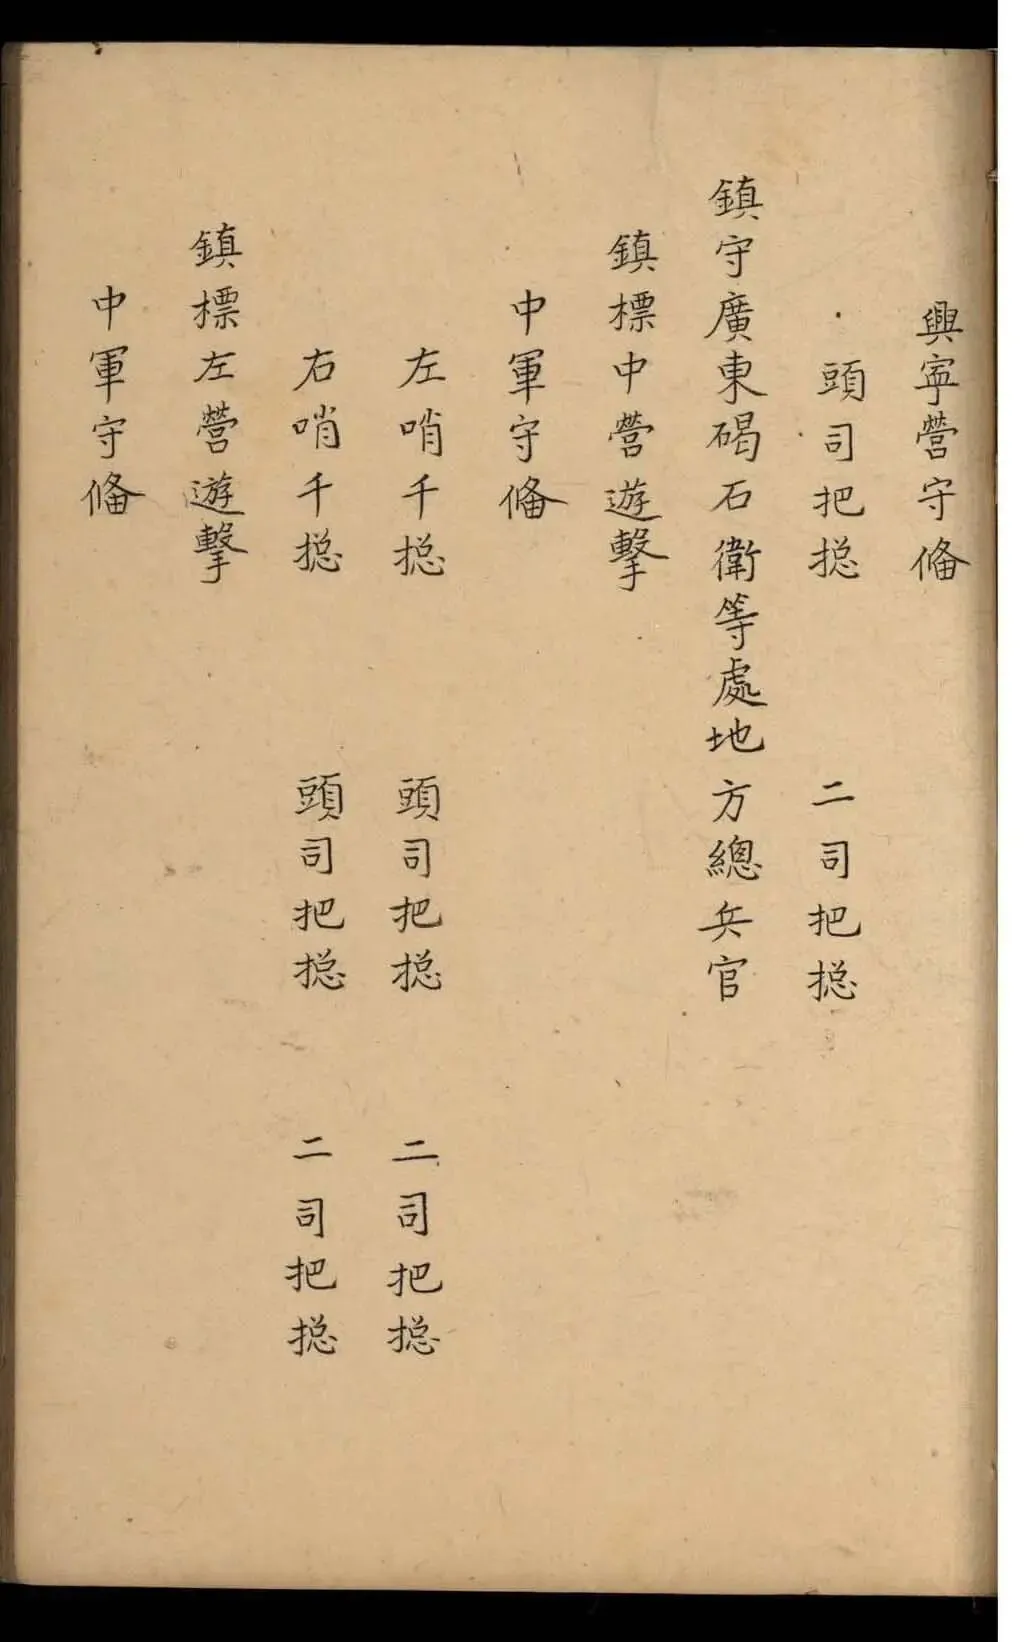 興寧營守備
頭司把捴　二司把捴
鎮守廣東碣石衛等處地方總兵官
鎮標中營遊擊
中軍守備
左哨千捴　頭司把捴　二司把捴
右哨千捴　頭司把捴　二司把捴
鎮標左營遊擊
中軍守備